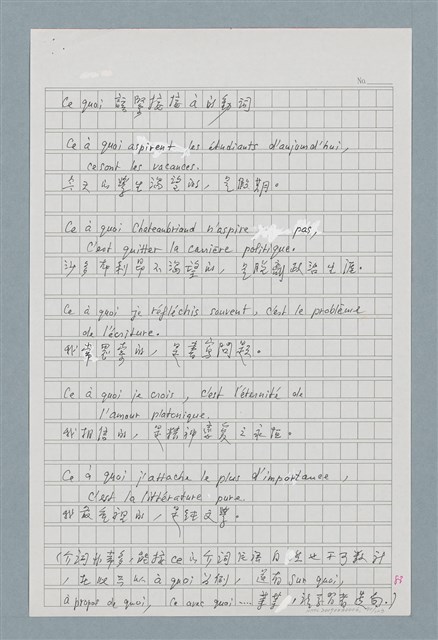 No.
Ce quoi 該緊接在 à 的動詞
Ce à quoi aspirent les étudiants d'aujourd'hui,
ce sont les vacances.
今天的學生渴望的，是假期。
Ce à quoi Chateaubriand n'aspire pas,
c'est quitter la carrière politique.
沙多布利昂不渴望的，是脫離政治生涯。
Ce à quoi je réfléchis souvent, c'est le problème
de l'écriture.
我常思索的，是書寫問題。
Ce à quoi je crois, c'est l'éternité de
l'amour platonique.
我相信的，是精神戀愛之永恆。
Ce à quoi j'attache le plus d'importance,
c'est la littérature pure.
我最重視的，是純文學。
(介詞形事多，能接 ce 的介詞片語自然也不可數計
，在此只以 à quoi 為例，還有 sur quoi,
à propos de quoi, ce avec quoi ...... 等等，請學習者造句。)